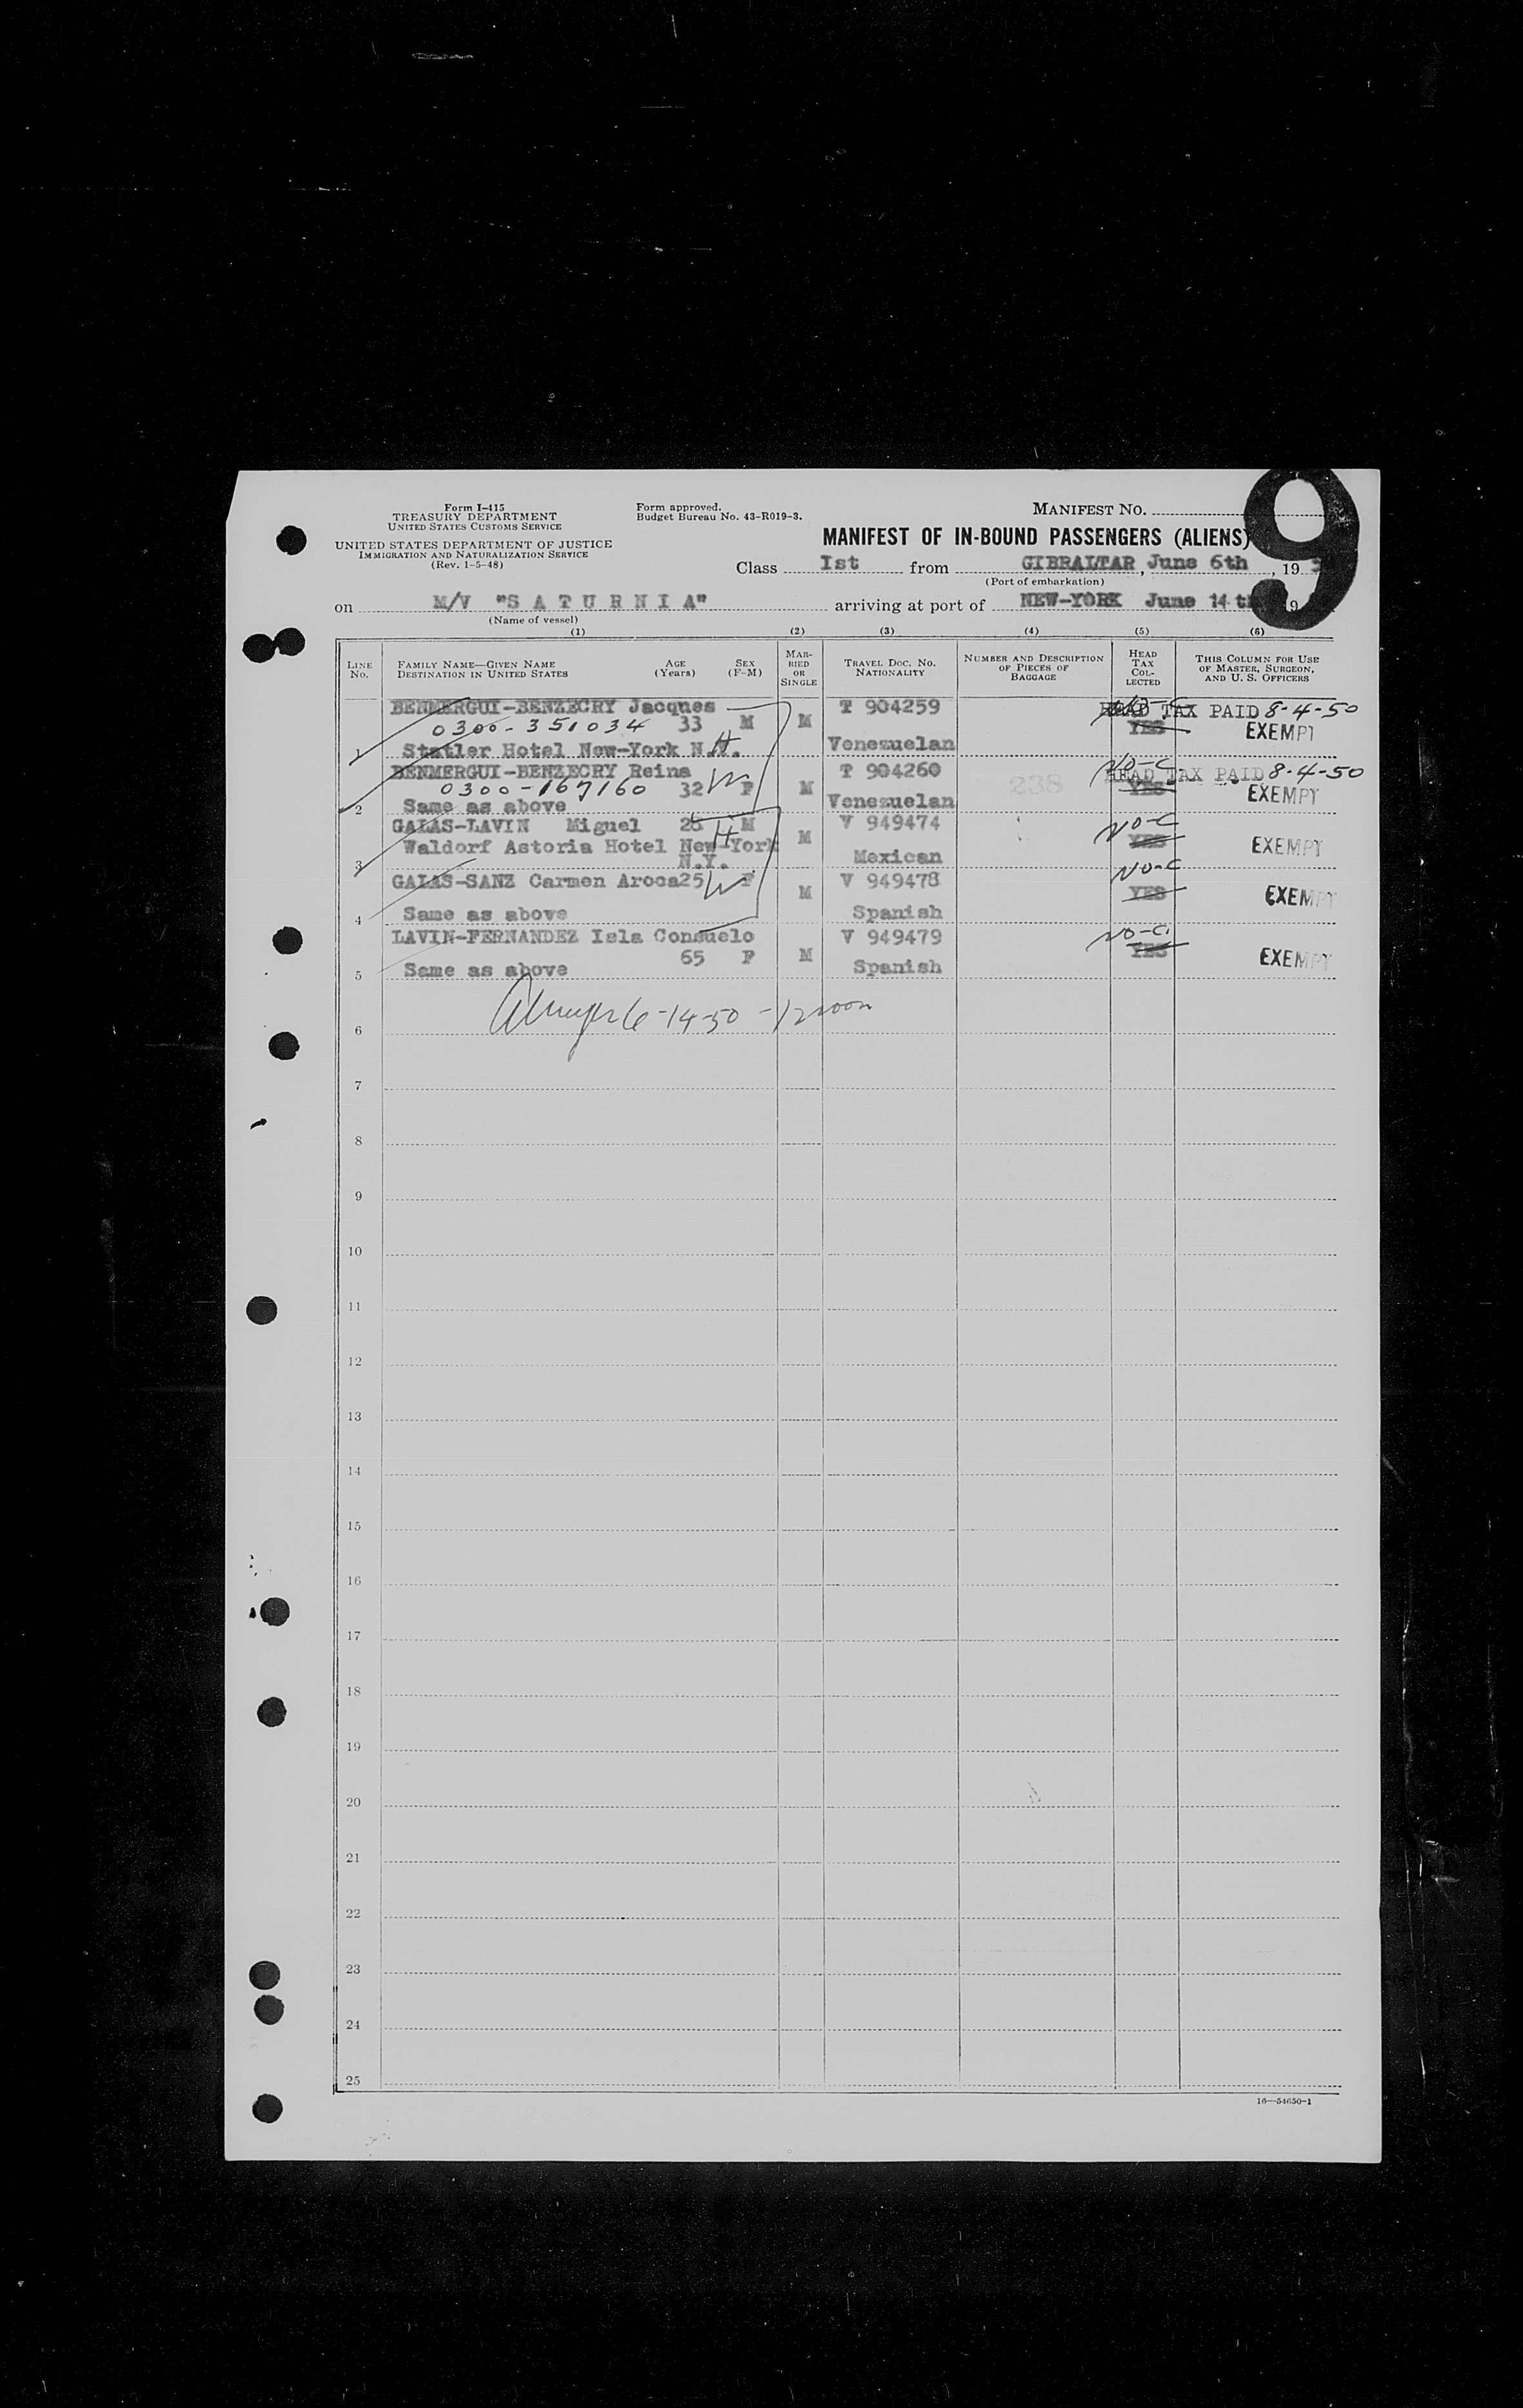 9
Form I-415
TREASURY DEPARTMENT
UNITED STATES CUSTOMS SERVICE
UNITED STATES DEPARTMENT OF JUSTICE
IMMIGRATION AND NATURALIZATION SERVICE
(Rev. 1-5-48)
Form approved.
Budget Bureau No. 43-R019-3.
MANIFEST NO.
MANIFEST OF IN-BOUND PASSENGERS (ALIENS)
Class Ist from GIBRALTAR, June 6th, 19
(Port of embarkation)
on M/V "S A T U R N I A" arriving at port of NEW-YORK June 14 th 19
(Name of vessel)
(1) (2) (3) (4) (5) (6)
LINE NO. FAMILY NAME—GIVEN NAME DESTINATION IN UNITED STATES AGE (Years) SEX (F-M) MARRIED OR SINGLE TRAVEL DOC. NO. NATIONALITY NUMBER AND DESCRIPTION OF PIECES OF BAGGAGE HEAD TAX COLLECTED THIS COLUMN FOR USE OF MASTER, SURGEON, AND U. S. OFFICERS
BENMERGUI-BENZECRY Jacques T 904259 HEAD TAX PAID 8-4-50
0300-351034 33 M M YES EXEMPT
1 Statler Hotel New-York N.Y. H Venezuelan
BENMERGUI-BENZECRY Reina T 904260 NO-C HEAD TAX PAID 8-4-50
0300-167160 32 W F M 238 YES EXEMPT
2 Same as above Venezuelan
GALAS-LAVIN Miguel M V 949474 NO-C
Waldorf Astoria Hotel New-York H M YES EXEMPT
3 N.Y. Mexican
GALAS-SANZ Carmen Aroca 25 W F V 949478 NO-C
M YES EXEMPT
4 Same as above Spanish
LAVIN-FERNANDEZ Isla Consuelo V 949479 NO-C
65 F M YES EXEMPT
5 Same as above Spanish
6-14-50 - 12 noon
6
7
8
9
10
11
12
13
14
15
16
17
18
19
20
21
22
23
24
25
16—54650-1